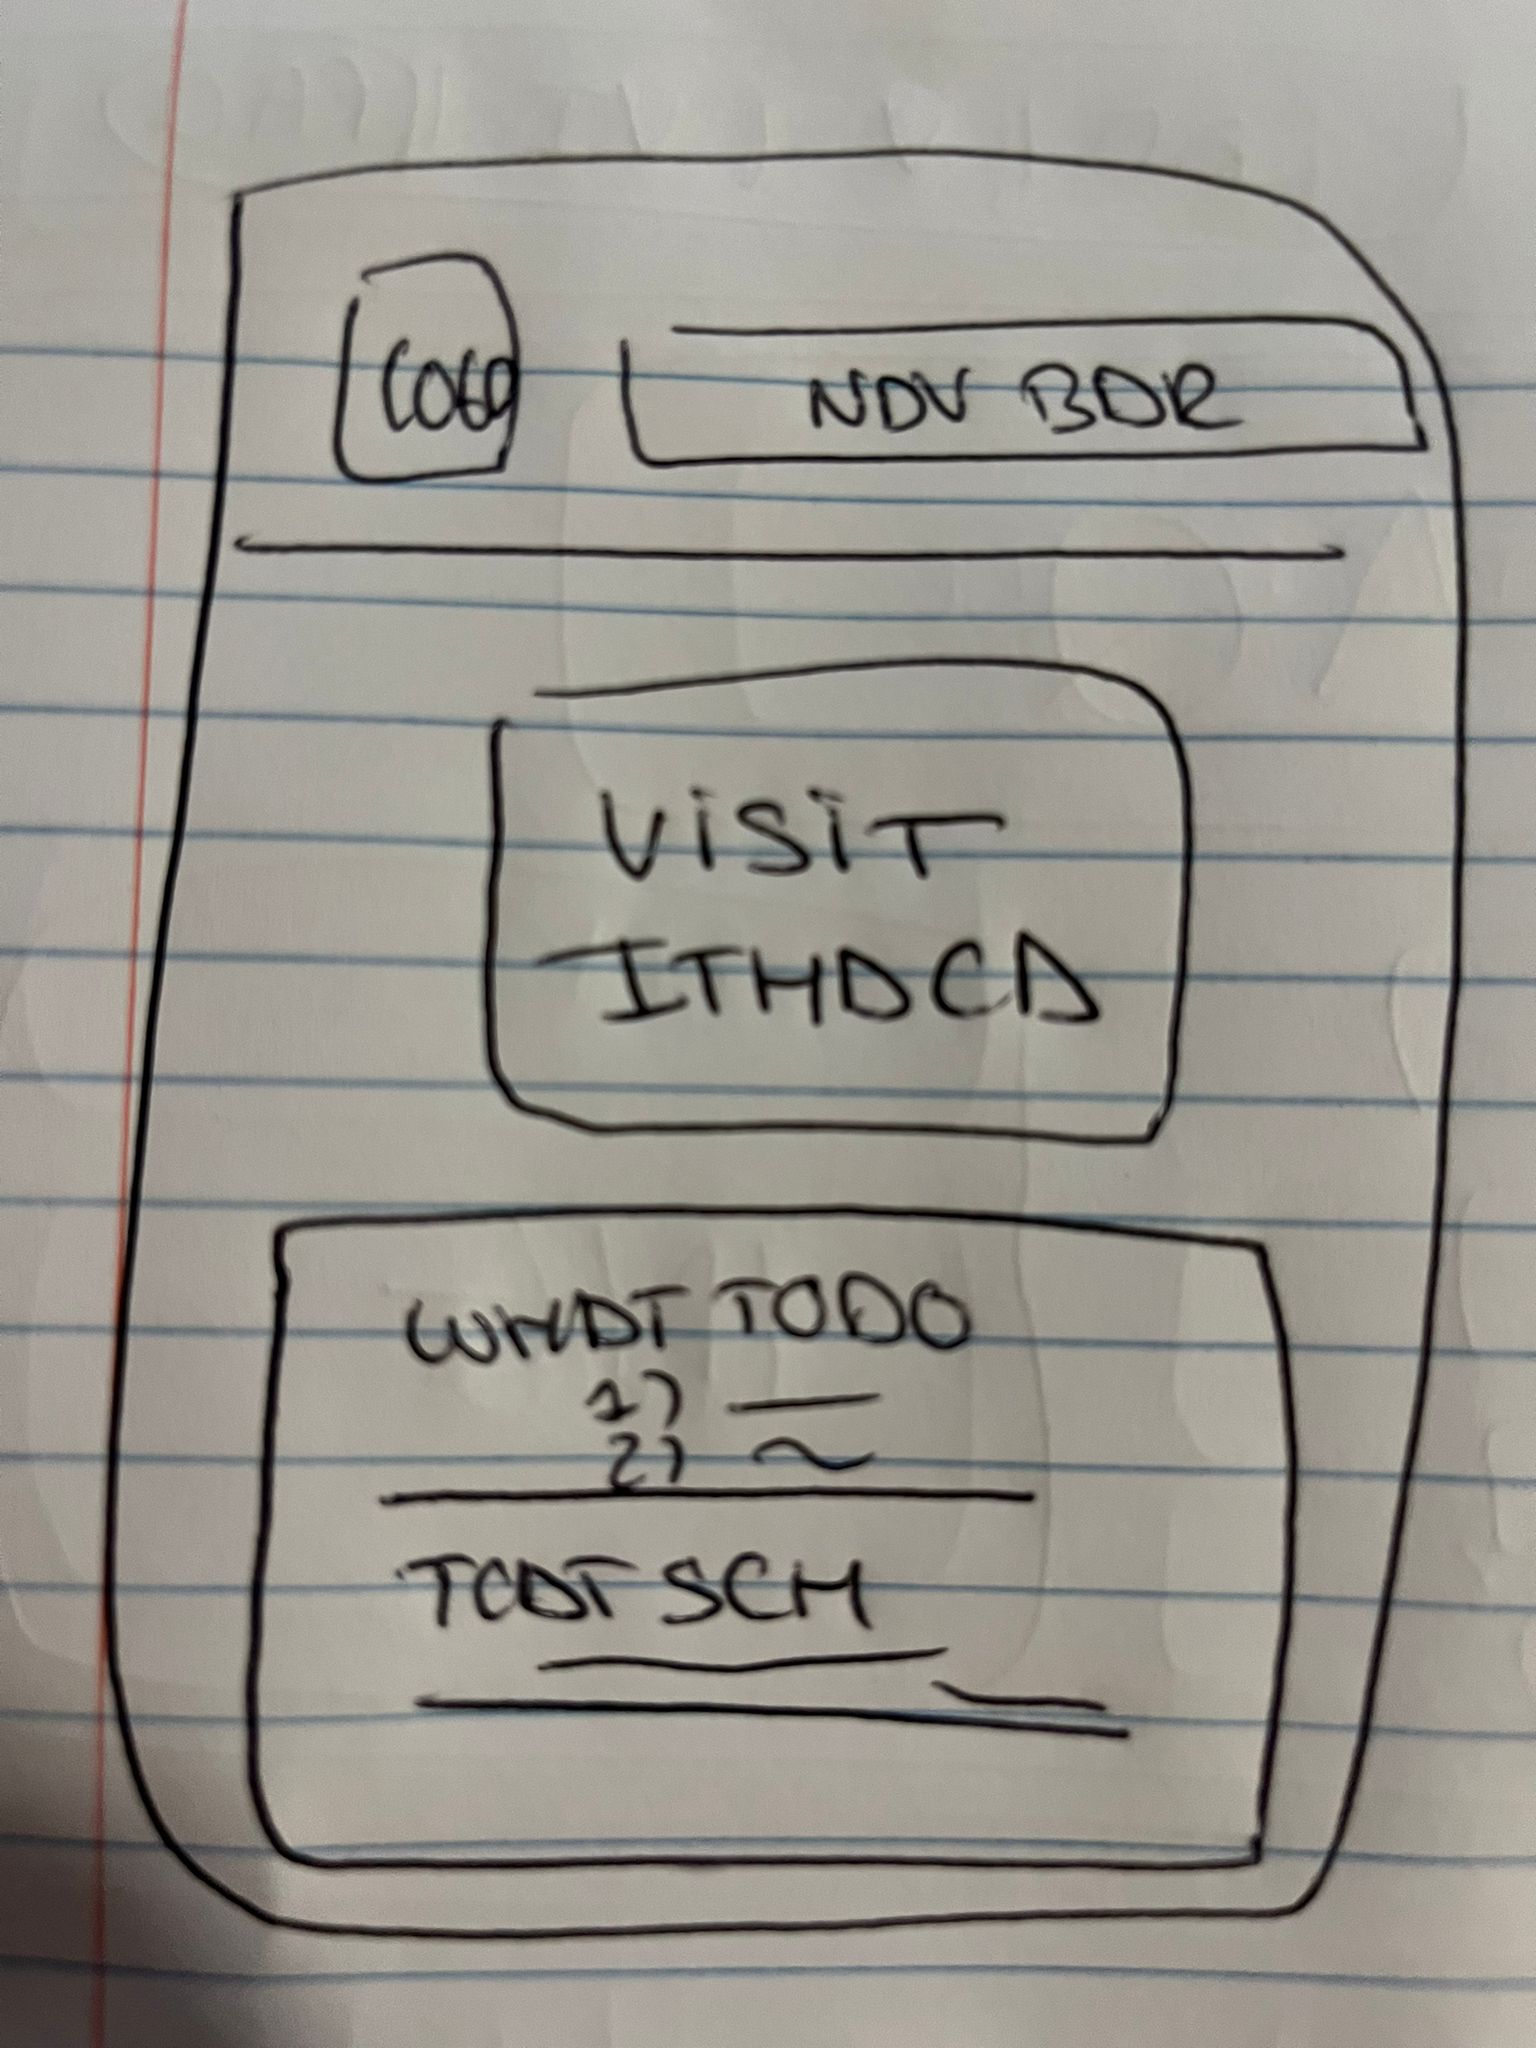 LOGO
NAV BAR
VISIT
ITHACA
WHAT TO DO
1)
2)
TCAT SCH